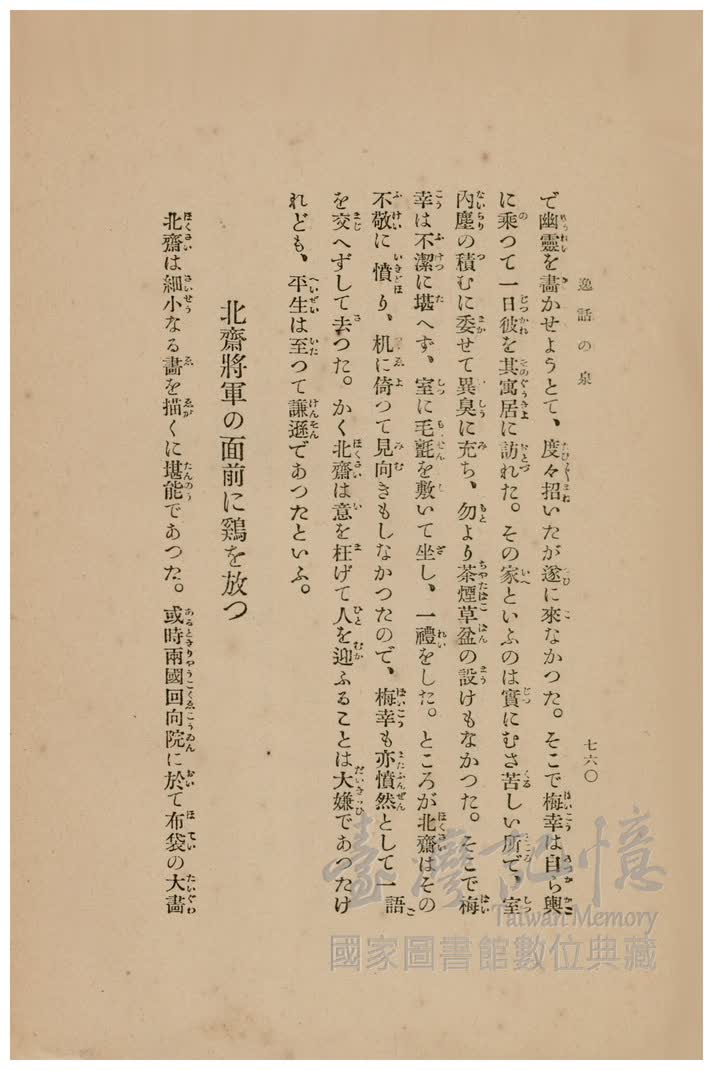 逸話の泉
七六〇
で幽靈を畵かせようとて、度々招いたが遂に來なかつた。そこで梅幸は自ら輿
に乘つて一日彼を其寓居に訪れた。その家といふのは實にむさ苦しい所で、室
內塵の積むに委せて異臭に充ち、勿より茶煙草盆の設けもなかつた。そこで梅
幸は不潔に堪へず、室に毛氈を敷いて坐し、一禮をした。ところが北齋はその
不敬に憤り、机に倚つて見向きもしなかつたので、梅幸も亦憤然として一語
を交へずして去つた。かく北齋は意を枉げて人を迎ふることは大嫌であつたけ
れども、平生は至つて謙遜であつたといふ。
北齋將軍の面前に鷄を放つ
北齋は細小なる畵を描くに堪能であつた。或時兩國回向院に於て布袋の大畵
臺灣記憶
Taiwan Memory
國家圖書館數位典藏